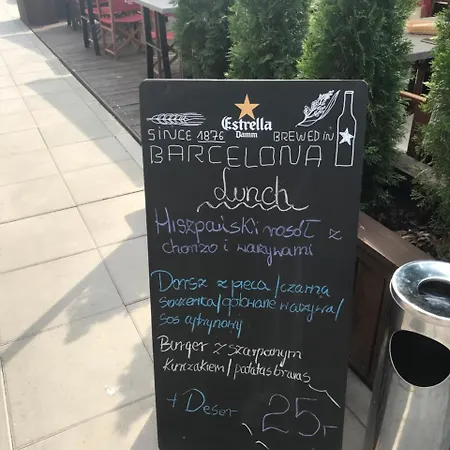 Estrella
Damm
SINCE 1876 BREWED IN
BARCELONA
Lunch
Hiszpański rosół z
chorizo i warzywami
Dorsz z pieca / czarna
soczewica / gotowane warzywa /
sos cytrynowy
Burger z szarpanym
Kurczakiem / patatas bravas
+ Deser 25,-